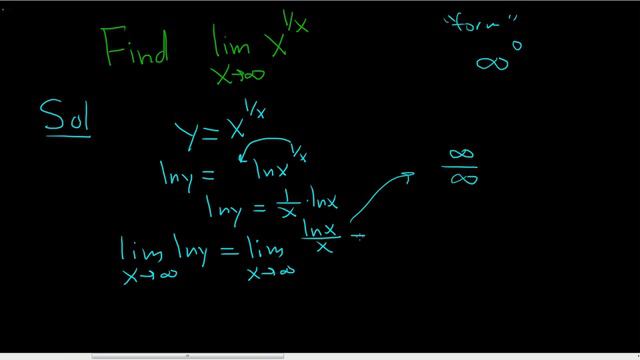 Find lim x→∞ x^(1/x)
"form"
∞^0
Sol
y = x^(1/x)
ln y = ln x^(1/x)
ln y = 1/x · ln x
lim x→∞ ln y = lim x→∞ ln x / x =
∞/∞